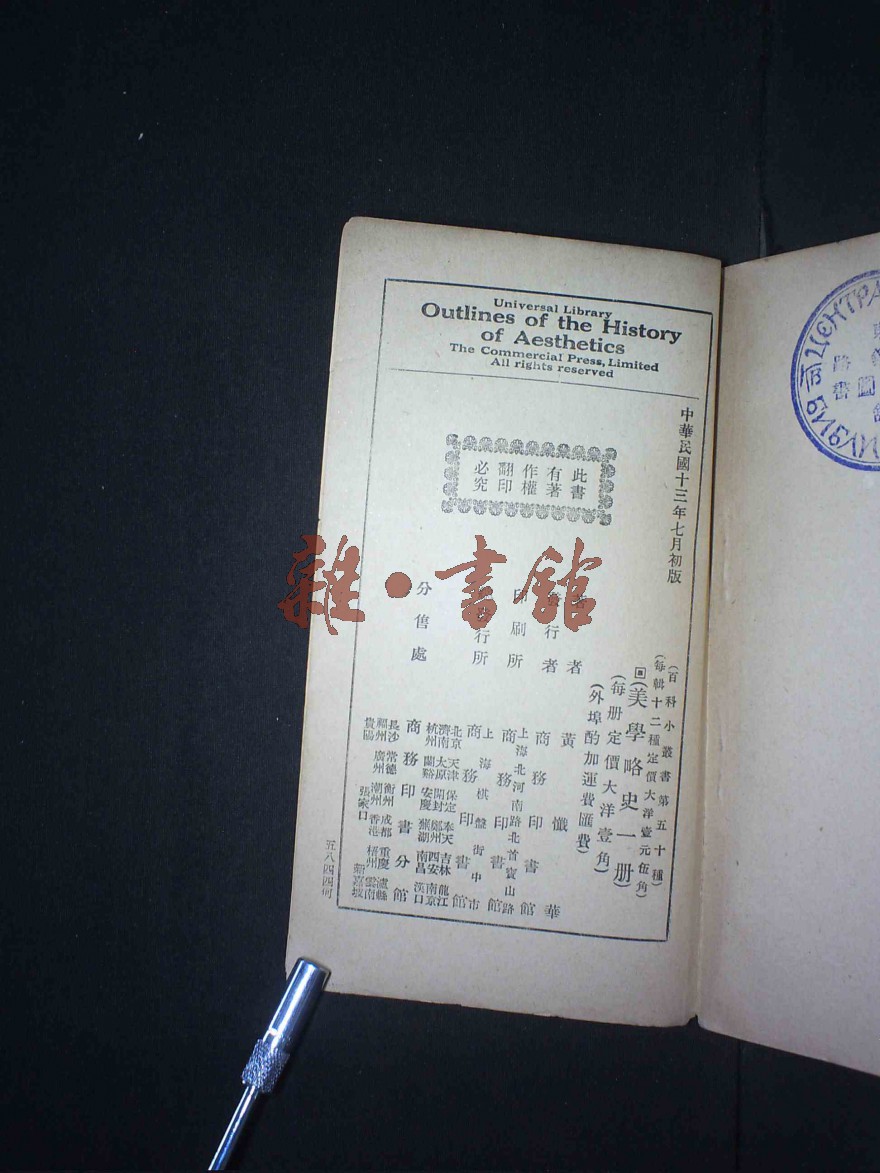 Universal Library
Outlines of the History
of Aesthetics
The Commercial Press, Limited
All rights reserved
中華民國十三年七月初版
此書
有著
作權
翻印
必究
(百科小叢書第五十種)
(每輯十二種定價大洋壹元伍角)
(美學略史一册)
(每册定價大洋壹角)
(外埠酌加運費匯費)
著者 黃懺華
發行者 商務印書館
印刷所 上海北河南路北首寶山路 商務印書館
發行所 上海棋盤街中市 商務印書館
分售處 商務印書分館
北京 天津 保定 奉天 吉林 龍江
濟南 太原 開封 鄭州 西安 南京
杭州 蘭谿 安慶 蕪湖 南昌 漢口
長沙 常德 衡州 成都 重慶 瀘縣
福州 廣州 潮州 香港 梧州 雲南
貴陽 張家口 新嘉坡
五八四四何
雜·書館
東
路
圖
書
館
ЦЕНТРА